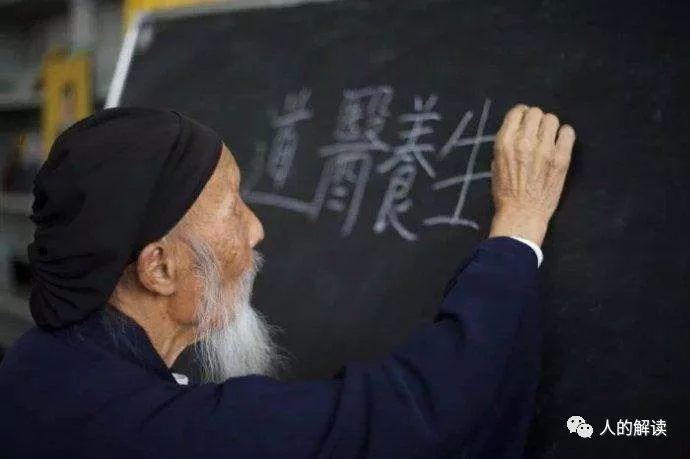 道醫養生
人的解读